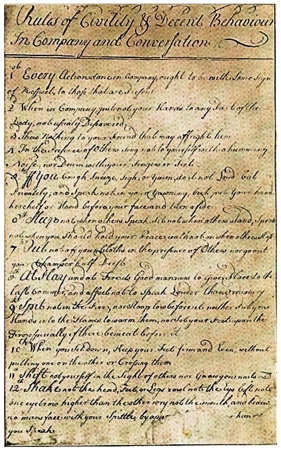 Rules of Civility & Decent Behaviour
In Company and Conversation
1st Every Action done in Company, ought to be with Some Sign
of Respect, to those that are Present.
2 When in Company, put not your Hands to any Part of the
Body, not usually Discovered.
3 Shew Nothing to your Freind that may affright him
4 In the Presence of Others Sing not to yourself with a humming
Noise, nor Drum with your Fingers or Feet
5 If You Cough, Sneeze, Sigh, or Yawn, do it not Loud but
Privately; and Speak not in your Yawning, but put Your hand
or before your face and turn aside
6th Sleep not when others Speak, Sit not when others stand, Speak
not when you Should hold your Peace, walk not on when others Stop
7th Put not off your Cloths in the presence of Others, nor go out
your Chamber half Drest
8 At Play and at Fire its Good manners to Give Place to the
last Commer, and affect not to Speak Louder than ordinary
9 Spit not in the Fire, nor Stoop low before it neither Put your
Hands into the Flames to warm them, nor Set your Feet upon the
Fire especially if there be meat before it
10th When you Sit down, Keep your Feet firm and Even, without
putting one on the other or Crossing them
11th Shift not yourself in the Sight of others nor Gnaw your nails
12th Shake not the head, Feet, or Legs rowl not the Eys lift not
one eyebrow higher than the other wry not the mouth, and bedew
no mans face with your Spittle, by him
you Speak